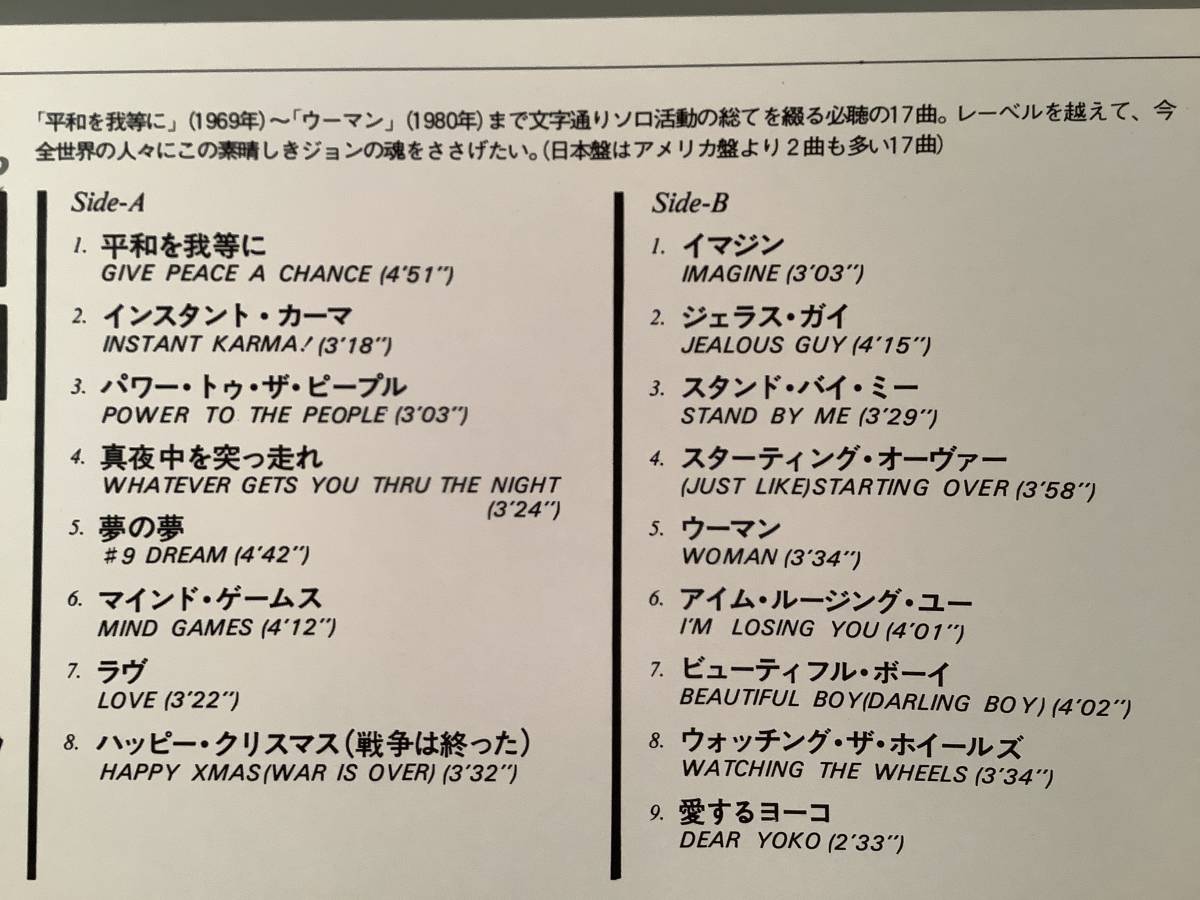 「平和を我等に」(1969年)～「ウーマン」(1980年)まで文字通りソロ活動の総てを綴る必聴の17曲。レーベルを越えて、今
全世界の人々にこの素晴しきジョンの魂をささげたい。(日本盤はアメリカ盤より2曲も多い17曲)
Side-A
1. 平和を我等に
GIVE PEACE A CHANCE (4'51")
2. インスタント・カーマ
INSTANT KARMA! (3'18")
3. パワー・トゥ・ザ・ピープル
POWER TO THE PEOPLE (3'03")
4. 真夜中を突っ走れ
WHATEVER GETS YOU THRU THE NIGHT
(3'24")
5. 夢の夢
#9 DREAM (4'42")
6. マインド・ゲームス
MIND GAMES (4'12")
7. ラヴ
LOVE (3'22")
8. ハッピー・クリスマス(戦争は終った)
HAPPY XMAS(WAR IS OVER) (3'32")
Side-B
1. イマジン
IMAGINE (3'03")
2. ジェラス・ガイ
JEALOUS GUY (4'15")
3. スタンド・バイ・ミー
STAND BY ME (3'29")
4. スターティング・オーヴァー
(JUST LIKE)STARTING OVER (3'58")
5. ウーマン
WOMAN (3'34")
6. アイム・ルージング・ユー
I'M LOSING YOU (4'01")
7. ビューティフル・ボーイ
BEAUTIFUL BOY(DARLING BOY) (4'02")
8. ウォッチング・ザ・ホイールズ
WATCHING THE WHEELS (3'34")
9. 愛するヨーコ
DEAR YOKO (2'33")